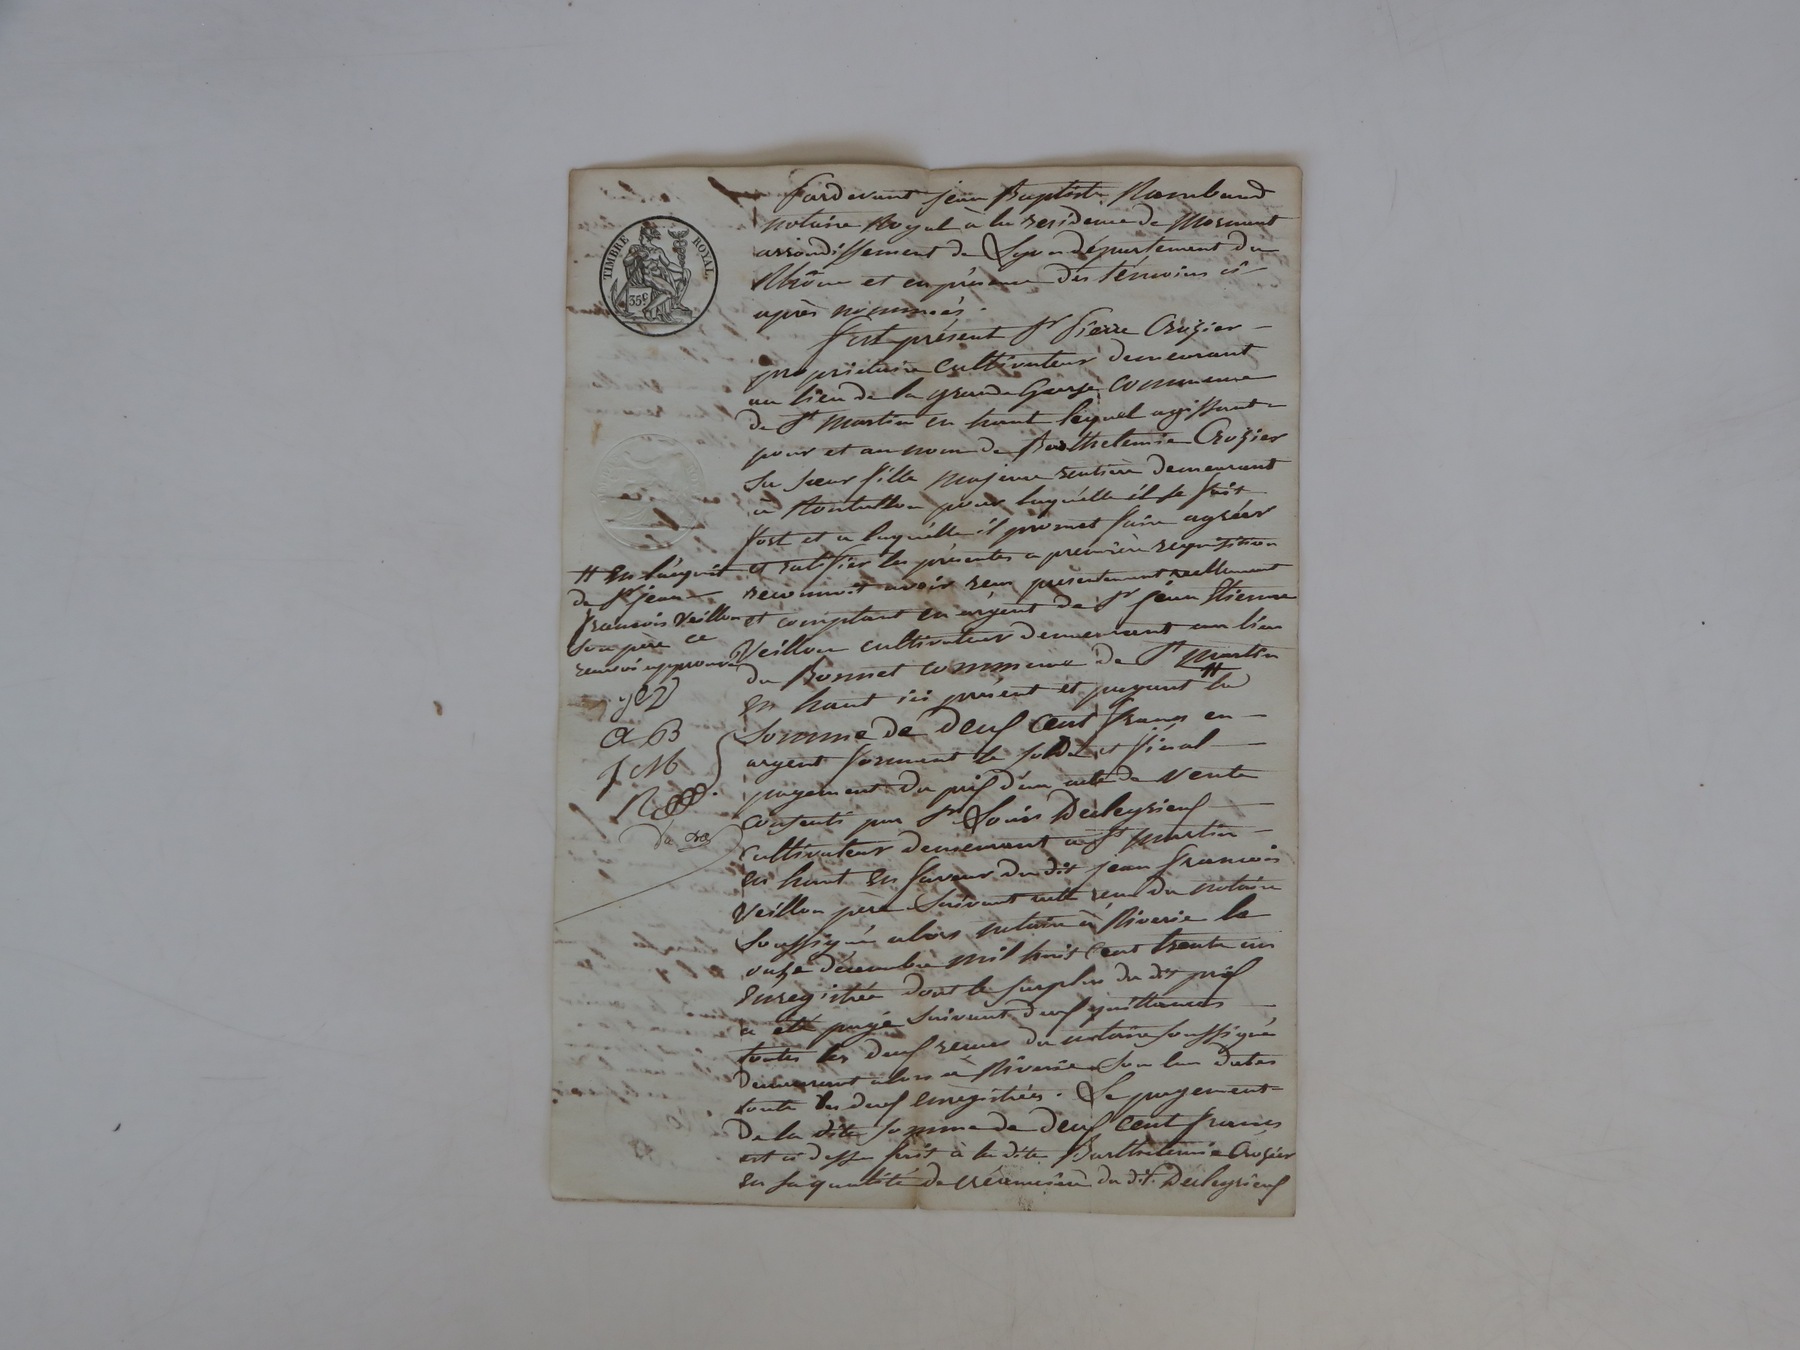 TIMBRE ROYAL
35c
Pardevant jean Baptiste Rambaud
notaire Royal à la residence de Mornant
arrondissement de Lyon département du
Rhône et en présence des témoins ci-
après nommés.
Est présent Sr Pierre Crozier
propriétaire cultivateur demeurant
au lieu de la grande Gorge, commune
de St Martin en haut lequel agissant
pour et au nom de Barthelemie Crozier
sa sœur fille majeure rentière demeurant
à Rontallon pour laquélle il se fait
fort et a laquélle il promet faire agréer
et ratifier les présentes a première requisition
reconnoit avoir reçu présentement réellement
et comptant en argent de Sr jean Etienne
Veillon cultivateur demeurant au lieu
du Bonnet commune de St Martin
en haut ici présent et payant # la
somme de deux cent francs en
argent formant le solde et final
payement du prix d'un acte de vente
consenti par Sr Louis Duleysieux
cultivateur demeurant à St Martin
en haut en faveur du dit jean François
Veillon père suivant acte reçu du notaire
soussigné alors notaire à Riverie le
onze décembre mil huit cent trente un
Enregistrée dont le surplus du dit prix
a été payé suivant deux quittances
toutes les deux reçues du notaire soussigné
demeurant alors à Riverie sous leurs dates
toute les deux enregistrées. Le payement
De la dite somme de deux cent francs
est ci dessus fait à la dite Barthelemie Crozier
en sa qualité de créancière du dit Duleysieux
# en l'acquit
de Sr jean
François Veillon
son père ce
renvoi approuvé